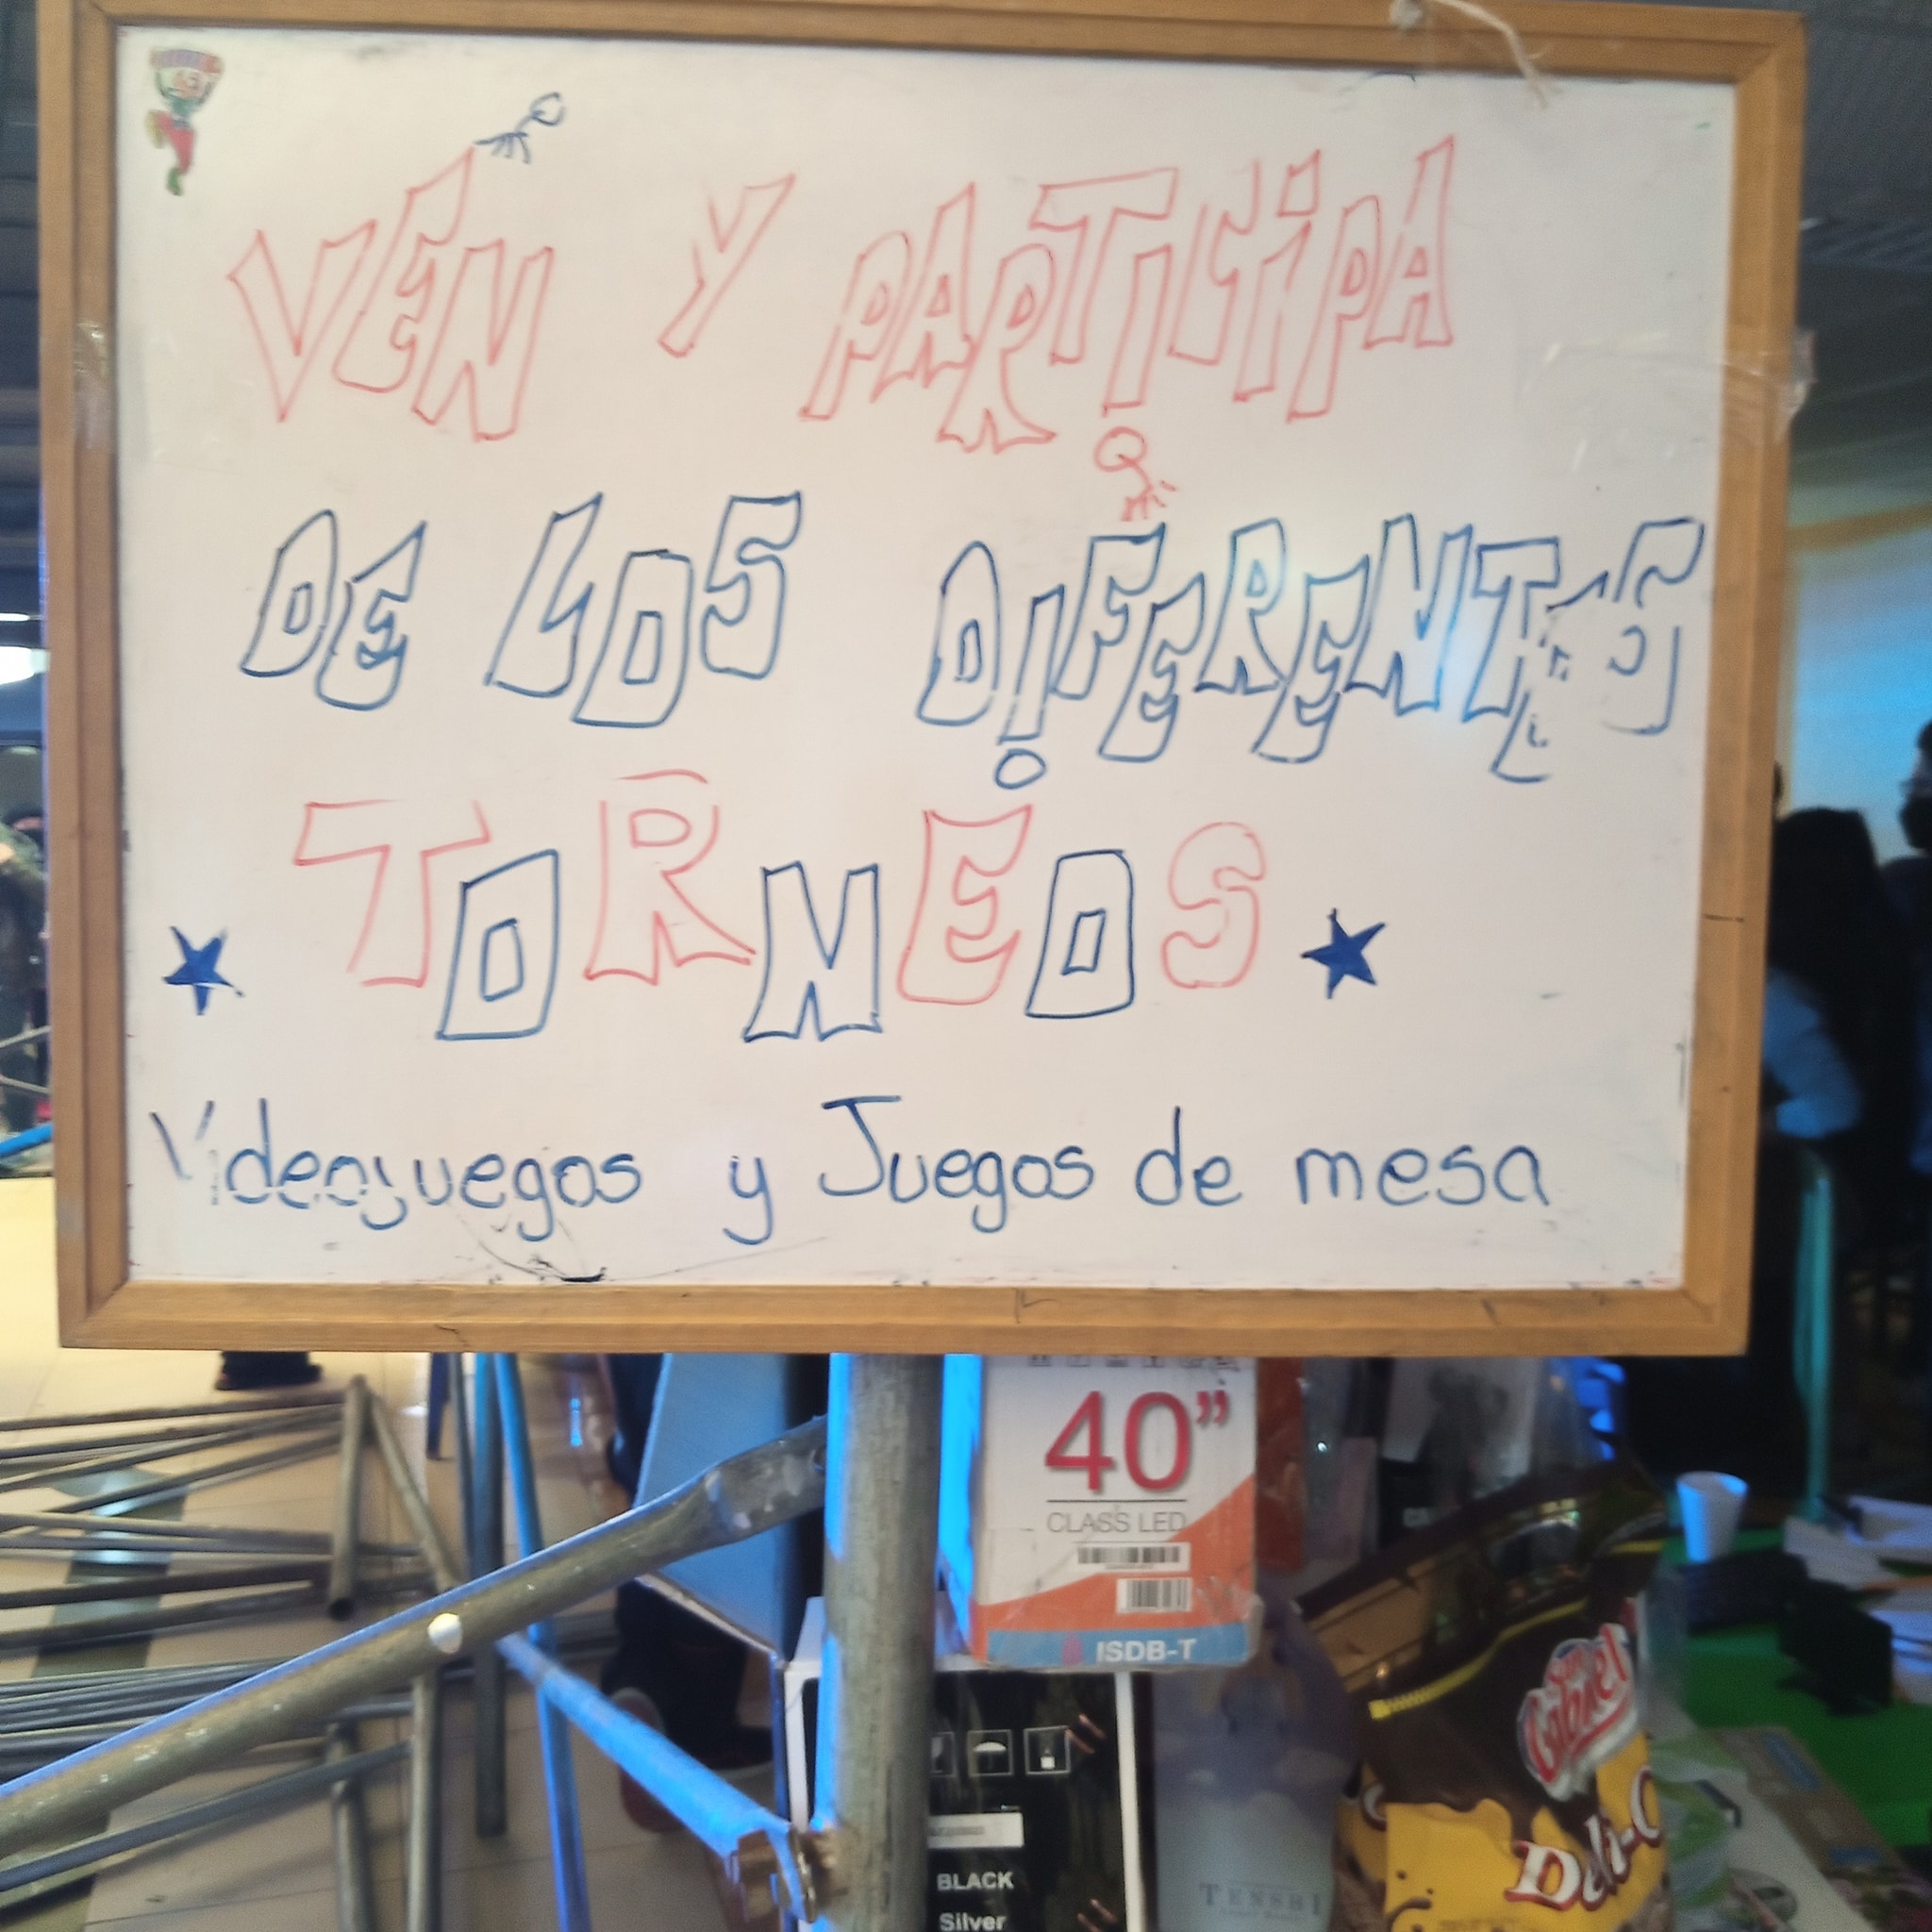 VEN Y PARTICIPA
DE LOS DIFERENTES
TORNEOS
Videojuegos y Juegos de mesa
40”
CLASS LED
ISDB-T
BLACK
Silver
TENSHI
San Gabriel